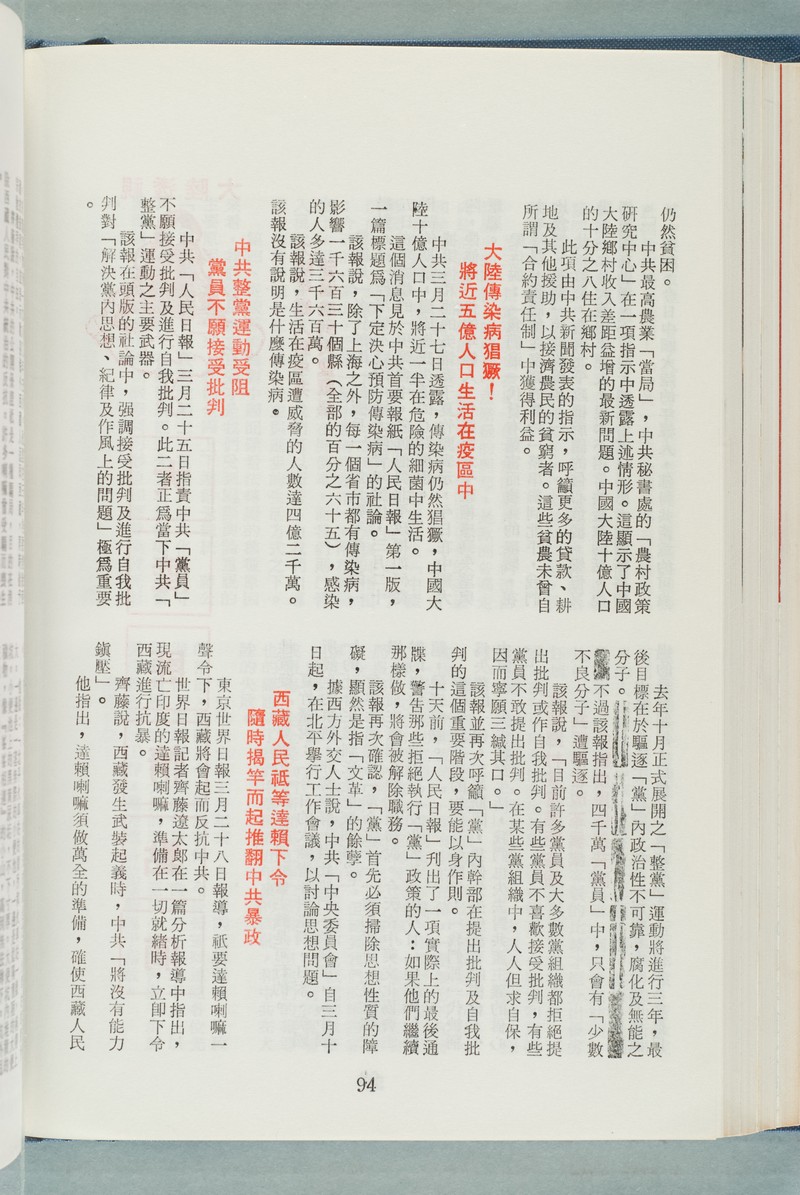 仍然貧困。
中共最高農業「當局」，中共秘書處的「農村政策
研究中心」在一項指示中透露上述情形。這顯示了中國
大陸鄉村收入差距益增的最新問題。中國大陸十億人口
的十分之八住在鄉村。
此項由中共新聞發表的指示，呼籲更多的貸款、耕
地及其他援助，以接濟農民的貧窮者。這些貧農未曾自
所謂「合約責任制」中獲得利益。
大陸傳染病猖獗！
將近五億人口生活在疫區中
中共三月二十七日透露，傳染病仍然猖獗，中國大
陸十億人口中，將近一半在危險的細菌中生活。
這個消息見於中共首要報紙「人民日報」第一版，
一篇標題為「下定決心預防傳染病」的社論。
該報說，除了上海之外，每一個省市都有傳染病，
影響一千六百三十個縣（全部的百分之六十五），感染
的人多達三千六百萬。
該報說，生活在疫區遭威脅的人數達四億二千萬。
該報沒有說明是什麼傳染病。
中共整黨運動受阻
黨員不願接受批判
中共「人民日報」三月二十五日指責中共「黨員」
不願接受批判及進行自我批判。此二者正為當下中共「
整黨」運動之主要武器。
該報在頭版的社論中，强調接受批判及進行自我批
判對「解決黨內思想、紀律及作風上的問題」極為重要
。
去年十月正式展開之「整黨」運動將進行三年，最
後目標在於驅逐「黨」內政治性不可靠，腐化及無能之
分子。
不過該報指出，四千萬「黨員」中，只會有「少數
不良分子」遭驅逐。
該報說，「目前許多黨員及大多數黨組織都拒絕提
出批判或作自我批判。有些黨員不喜歡接受批判，有些
黨員不敢提出批判。在某些黨組織中，人人但求自保，
因而寧願三緘其口。」
該報並再次呼籲「黨」內幹部在提出批判及自我批
判的這個重要階段，要能以身作則。
十天前，「人民日報」刋出了一項實際上的最後通
牒，警告那些拒絕執行「黨」政策的人：如果他們繼續
那樣做，將會被解除職務。
該報再次確認，「黨」首先必須掃除思想性質的障
礙，顯然是指「文革」的餘孽。
據西方外交人士說，中共「中央委員會」自三月十
日起，在北平舉行工作會議，以討論思想問題。
西藏人民祗等達賴下令
隨時揭竿而起推翻中共暴政
東京世界日報三月二十八日報導，祇要達賴喇嘛一
聲令下，西藏將會起而反抗中共。
世界日報記者齊藤遼太郎在一篇分析報導中指出，
現流亡印度的達賴喇嘛，準備在一切就緒時，立卽下令
西藏進行抗暴。
齊藤說，西藏發生武裝起義時，中共「將沒有能力
鎭壓」。
他指出，達賴喇嘛須做萬全的準備，確使西藏人民
94